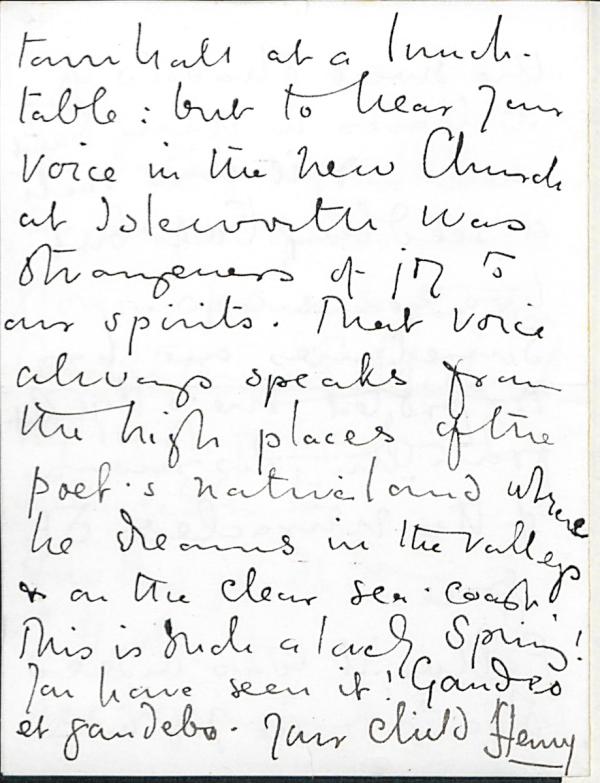 at a lunch-
table: but to hear your
voice in the new Church
at Isleworth was
strangeness of joy to
our spirits. That voice
always speaks from
the high places of the
poet's native land where
he dreams in the valleys
& on the clear sea-coast.
This is such a lovely Spring!
You have seen it! Gaudeo
et gaudebo. Your child Henry